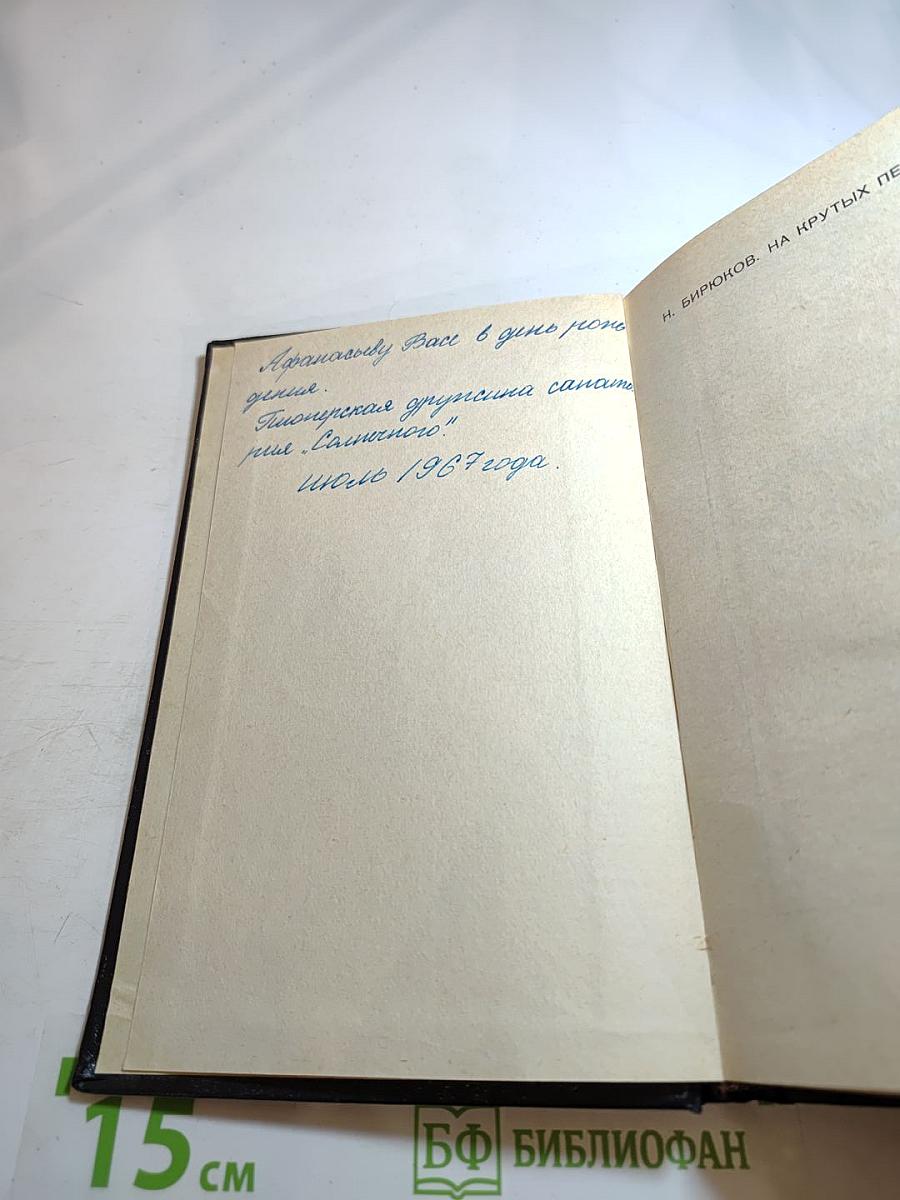 Афанасьеву Васе в день рож
дения.
Пионерская дружина санато
рия „Солнечного".
июль 1967 года.
Н. БИРЮКОВ. НА КРУТЫХ ПЕ
15 см
БФ БИБЛИОФАН